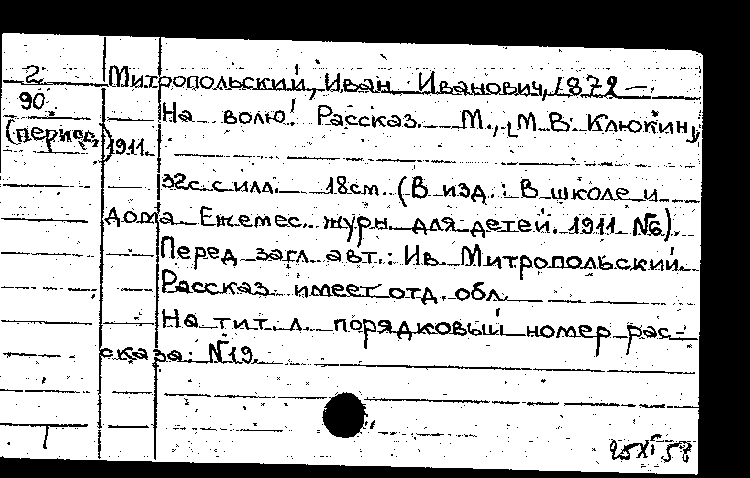 2 Митропольский, Иван Иванович, 1872 —
90 На волю! Рассказ. М., М.В. Клюкин,
(период.) 1911.
32с. с илл. 18см. (В изд.: В школе и
дома. Ежемес. журн. для детей. 1911. №6).
Перед загл. авт.: Ив. Митропольский.
Рассказ имеет отд. обл.
На тит. л. порядковый номер рас-
сказа: №19.
1 25 XI 58